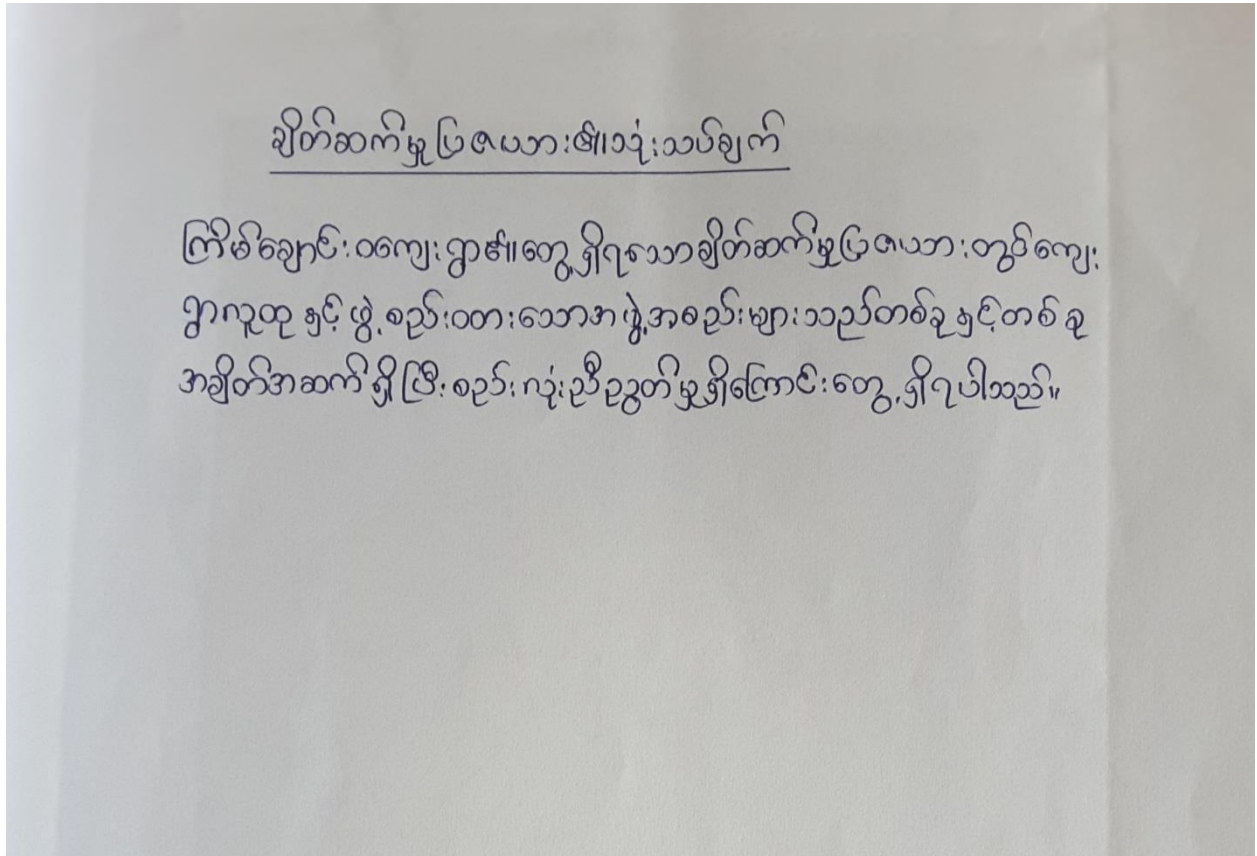 ချိတ်ဆက်မှုပြဇယား၏သုံးသပ်ချက်
ကြိမ်ချောင်းဝကျေးရွာ၏တွေ့ရှိရသောချိတ်ဆက်မှုပြဇယားတွင်ကျေး
ရွာလူထုနှင့်ဖွဲ့စည်းထားသောအဖွဲ့အစည်းများသည်တစ်ခုနှင့်တစ်ခု
အချိတ်အဆက်ရှိပြီးစည်းလုံးညီညွတ်မှုရှိကြောင်းတွေ့ရှိရပါသည်။